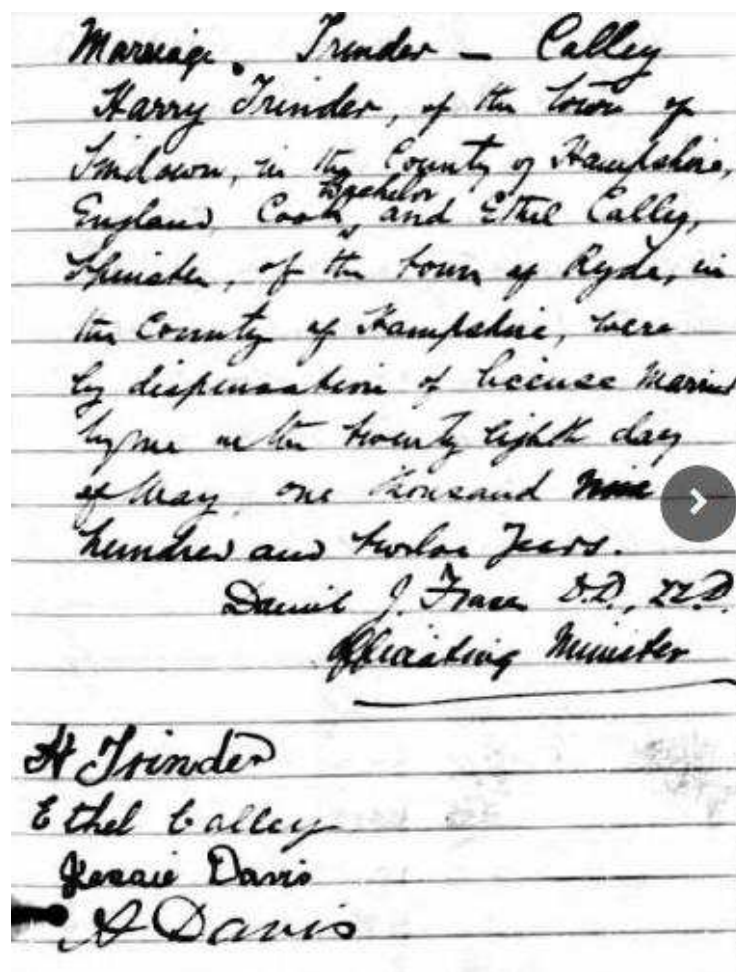 Marriage. Trinder — Calley
Harry Trinder, of the town of
in the County of Hampshire,
Bachelor
England, Cook, and Ethel Calley,
Spinster, of the town of Ryde, in
the County of Hampshire, were
by dispensation of license married
by me on the twenty eighth day
of May, one thousand nine
hundred and twelve Years.
Daniel J. Fraser D.D., LL.D.
Officiating Minister
H Trinder
Ethel Calley
Jessie Davis
A Davis